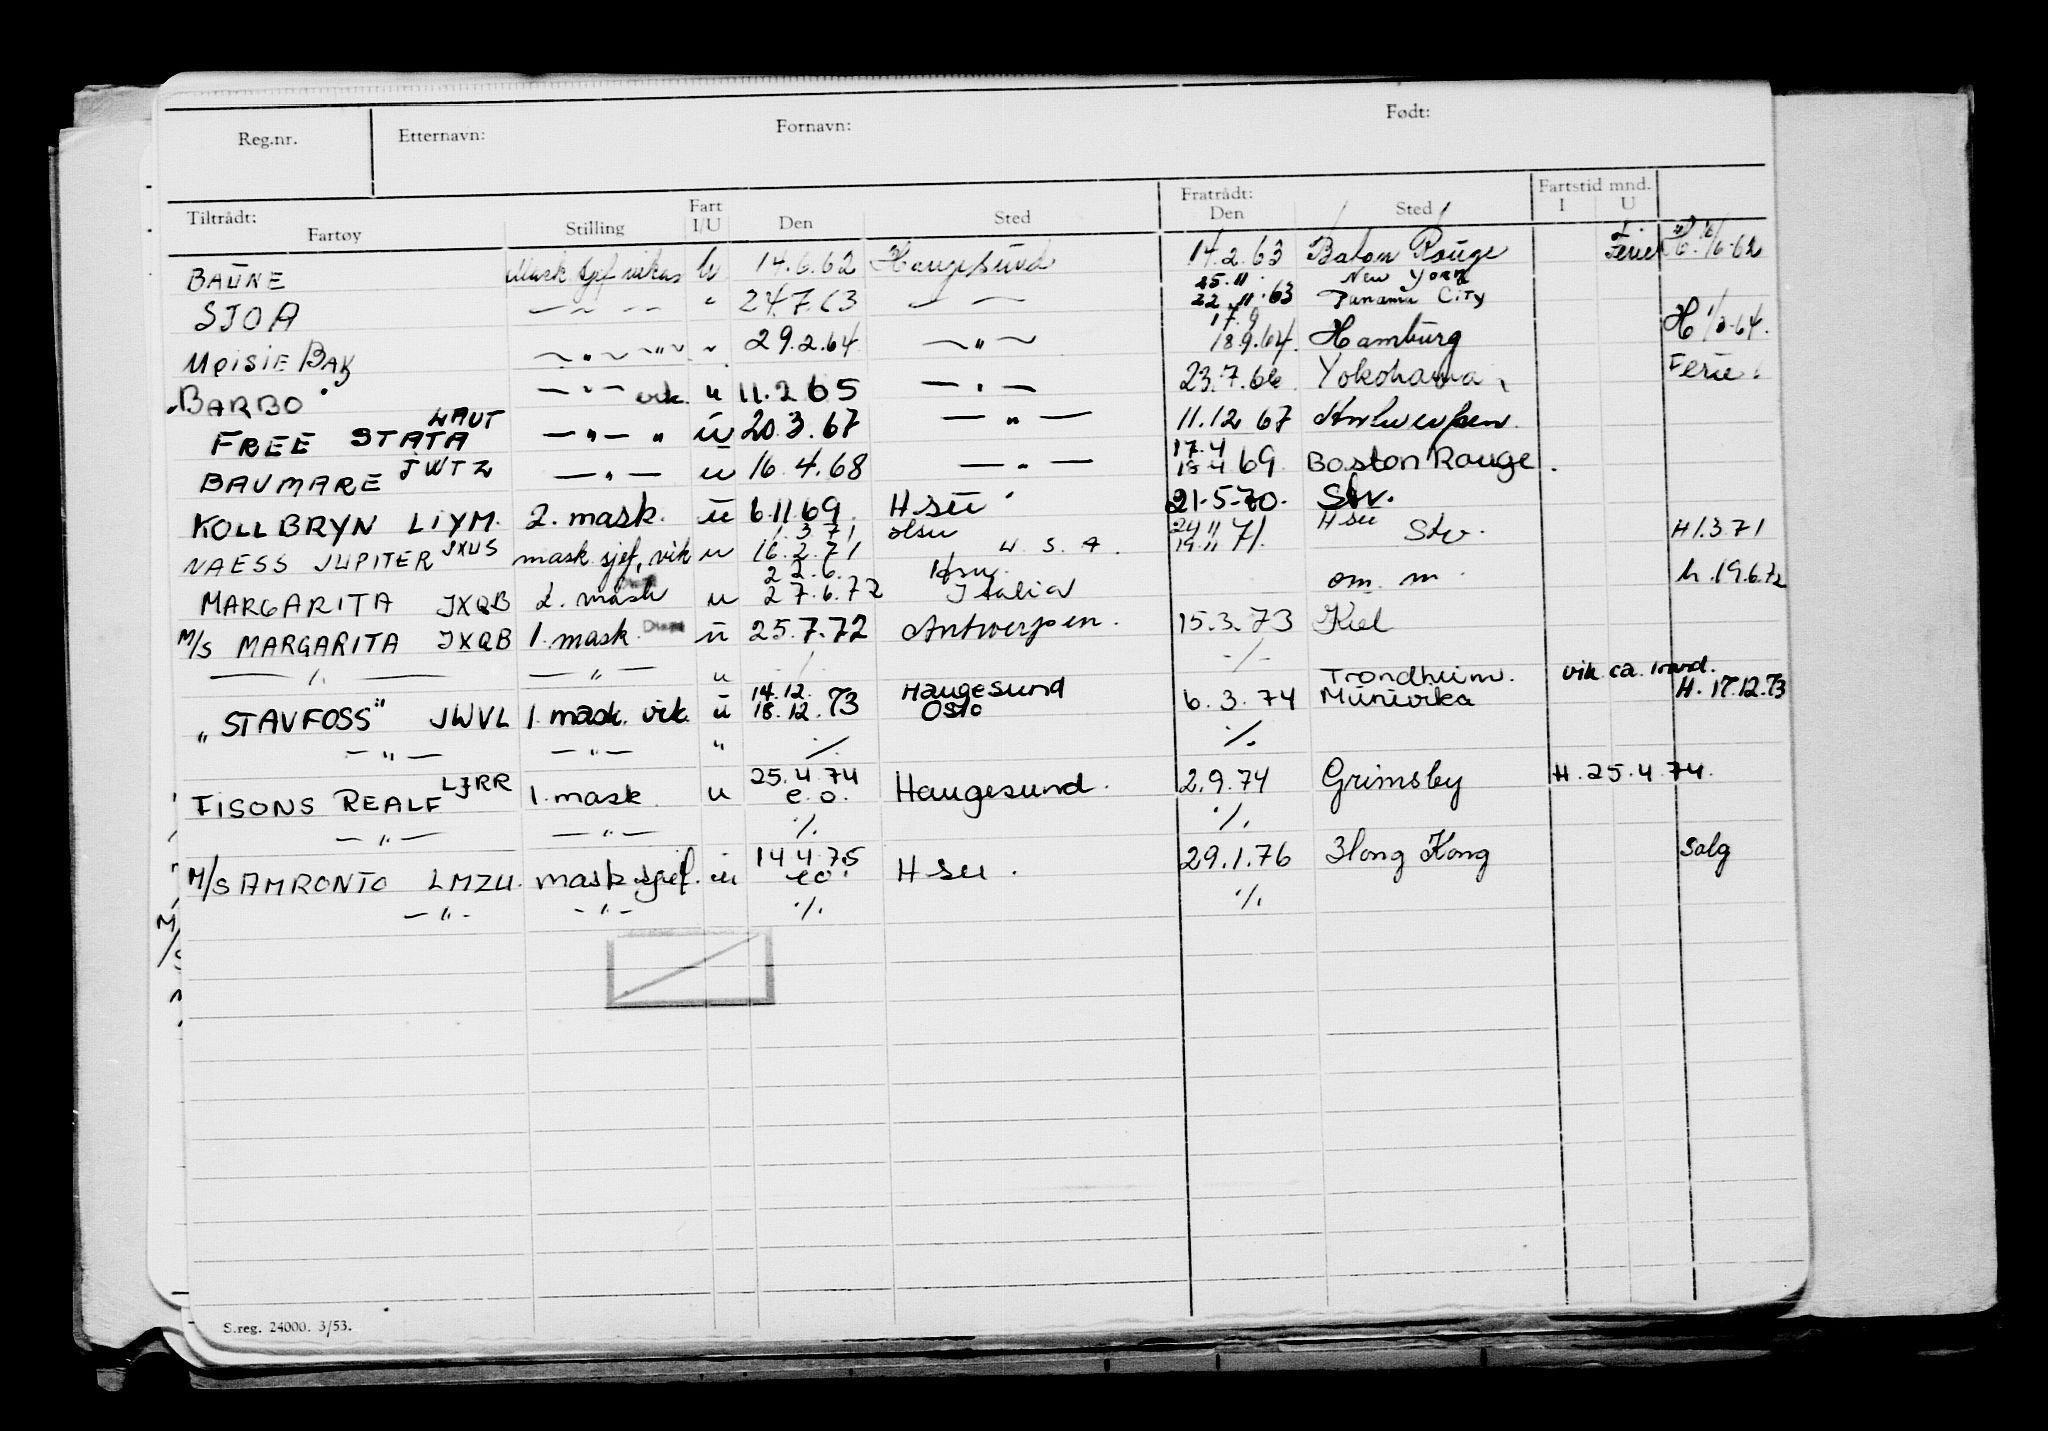 Reg.nr. Etternavn: Fornavn: Født:
Tiltrådt: Fartøy Stilling Fart I/U Den Sted Fratrådt: Den Sted Fartstid mnd. I U
BAUNE Mask sjef vikar u 14.6.62 Haugesund 14.2.63 Baton Rouge Ferie
25.11 New York
SJOA — " — " 24.7.63 — " — 22.11.63 Panama City
17.9
MOISIE BAY — " — " — " 29.2.64 — " — 18.9.64. Hamburg H 1/3-64.
"BARBO" — " — vik. u 11.2.65 — " — 23.7.66 Yokohama Ferie.
FREE STATA LAUT — " — " u 20.3.67 — " — 11.12.67 Antwerpen.
17.4
BAUMARE JWTZ — " — u 16.4.68 — " — 18.4.69 Boston Rouge.
KOLLBRYN LIYM. 2. mask. u 6.11.69. Hsu 21.5.70. Stv.
1.3.71 24.11 Hsu
NAESS JUPITER JXUS mask sjef, vik u 16.2.71 U.S.A. 19.11.71. Stv. H 1.3.71
22.6. Hsu.
MARGARITA JXQB 2. mask u 27.6.72 Italia om. m. h. 19.6.72
M/S MARGARITA JXQB 1. mask. u 25.7.72 Antwerpen. 15.3.73 Kiel
— " — — " — u ./. ./.
14.12. Haugesund Trondheim. vik ca. 1 mnd.
"STAVFOSS" JWVL 1. mask. vik. u 18.12.73 Oslo 6.3.74 Munivika H. 17.12.73
— " — — " — " ./. ./.
25.4.74
FISONS REALF LJRR 1. mask u e.o. Haugesund. 2.9.74 Grimsby H. 25.4.74.
— " — — " — ./. ./.
14.4.75
M/S AMRONTO LMZU. mask sjef. u e.o. Hsu. 29.1.76 Hong Kong Salg
— " — — " — ./. ./.
S.reg. 24000. 3/53.